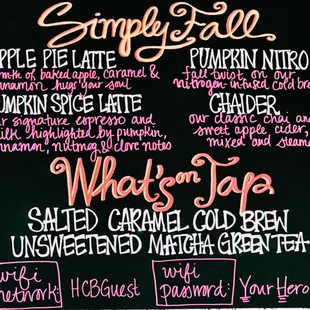 Simply Fall
PPLE PIE LATTE
mth of baked apple, caramel &
nnamon hugs your soul
UMPKIN SPICE LATTE
r signature espresso and
ilk highlighted by pumpkin,
nnamon, nutmeg & clove notes
PUMPKIN NITRO
fall twist on our
nitrogen infused cold bre
CHAIDER
our classic chai an
sweet apple cider,
mixed and steame
What's on Tap
SALTED CARAMEL COLD BREW
UNSWEETENED MATCHA GREEN TEA
wifi network: HCBGuest
wifi password: Your Hero